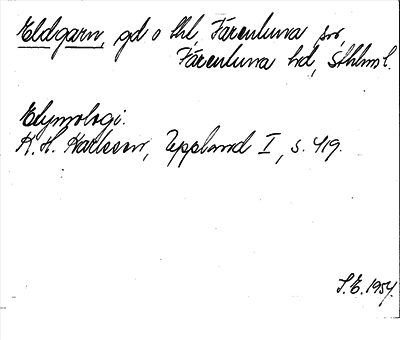 Eldgarn, gd o lht, Färentuna sn,
Färentuna hd, Sthlms l.
Etymologi:
K. H. Karlsson, Uppland I, s. 419.
S.E. 1954.